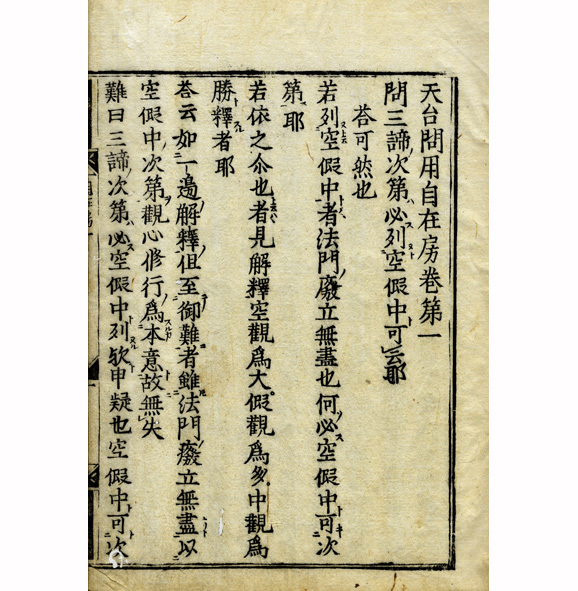 天台問用自在房巻第一
問三諦次第必列空假中可云耶
荅可然也
若列空假中者法門廢立無盡也何必空假中可次
第耶
若依之尒也者見解釋空觀爲大假觀爲多中觀爲
勝釋者耶
荅云如一邊解釋但至御難者雖法門癈立無盡以
空假中次第觀心修行爲本意故無失
難曰三諦次第必空假中列欤申疑也空假中可次